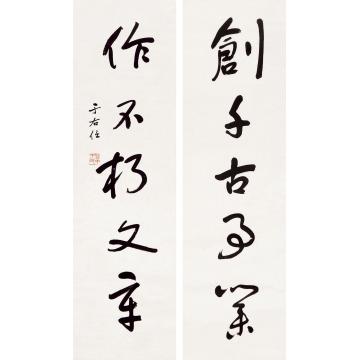 創千古事業
作不朽文章
于右任